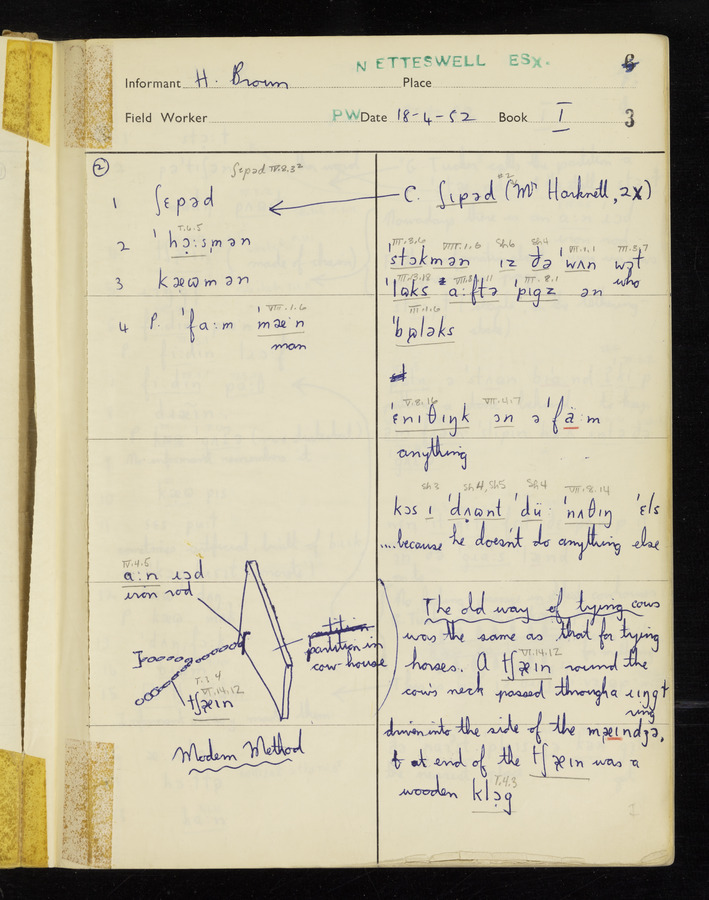 NETTESWELL ESX.
Informant H. Brown Place
Field Worker PW Date 18-4-52 Book I 3
②
ʃɛpəd IV.8.3²
1 ʃɛpəd
V.6.5
2 ˈhɔːsmən
3 kæʊmən
VIII.1.6
4 P. ˈfaːm mæˑn
man
IV.4.5
aːn ɹəd
iron rod
partition in
cow-house
I.3.4
VI.14.12
tʃæɪn
Modern Method
C. ʃɪpəd (Mr Harknett, 2x)
III.3.6 VIII.1.6 Sh6 Sh4 VII.1.1 III.3.7
ˈstɔkmən ɪz ðə ˈwʌn wɒt
who
III.13.18 III.8.1
ˈlʊks aːftə ˈpɪgz ən
III.1.6
ˈbʊləks
V.8.16 VII.4.7
ˈɛnɪθɪŋk ɔn ə ˈfäˑm
anything
Sh3 Sh4, Sh5 Sh4 VII.8.14
kɔs ɪ ˈdʌʊnt ˈdüː ˈnʌθɪŋ ˈɛls
....because he doesn't do anything else
The old way of tying cows
was the same as that for tying
VI.14.12
horses. A tʃæɪn round the
cow's neck passed through a ɹɪŋg†
ring
driven into the side of the mæɪndʒə,
& at end of the tʃæɪn was a
I.4.3
wooden klɔg